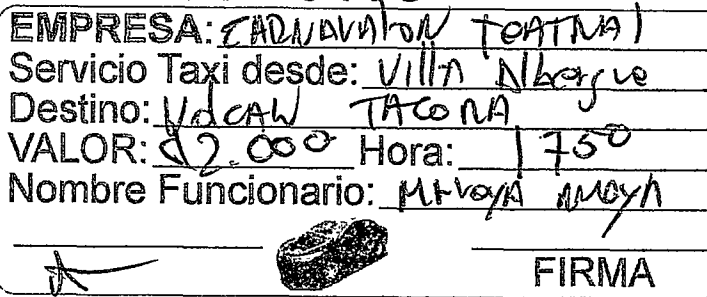 EMPRESA: CARNAVALON TEATRAL
Servicio Taxi desde: Villa Albergue
Destino: VOLCAN TACORA
VALOR: $2.000 Hora: 1750
Nombre Funcionario: AMAYA
FIRMA